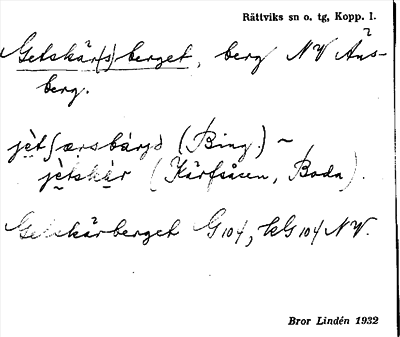 Rättviks sn o. tg, Kopp. I.
Getskär(s)berget, berg NV Åns-
berg.
jètʃærsbárjə (Bing.) ~
jètskèr (Kärfsåsen, Boda).
Getskärberget G104, kG104 NV.
Bror Lindén 1932